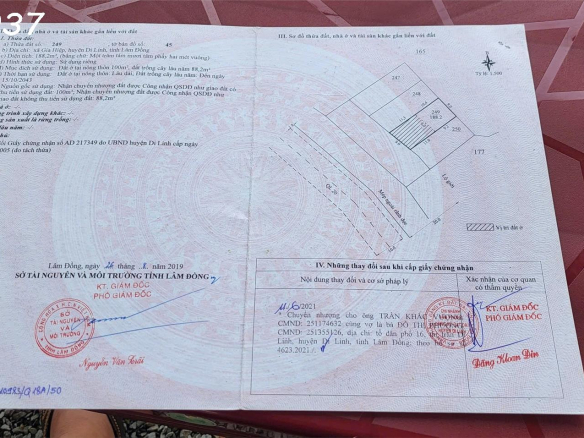 037
I. Thửa đất, nhà ở và tài sản khác gắn liền với đất
1. Thửa đất:
a) Thửa đất số: 249 tờ bản đồ số: 45
b) Địa chỉ: xã Gia Hiệp, huyện Di Linh, tỉnh Lâm Đồng
c) Diện tích: 188,2m², (bằng chữ: Một trăm tám mươi tám phẩy hai mét vuông)
d) Hình thức sử dụng: Sử dụng riêng
đ) Mục đích sử dụng: Đất ở tại nông thôn 100m²; đất trồng cây lâu năm 88,2m²
e) Thời hạn sử dụng: Đất ở tại nông thôn: Lâu dài, Đất trồng cây lâu năm: Đến ngày
15/10/2043
Nguồn gốc sử dụng: Nhận chuyển nhượng đất được Công nhận QSDĐ như giao đất có
thu tiền sử dụng đất: 100m²; Nhận chuyển nhượng đất được Công nhận QSDĐ như
giao đất không thu tiền sử dụng đất: 88,2m²
ng trình xây dựng khác: -/-
ng sản xuất là rừng trồng: -/-
lâu năm: -/-
hú:
hồi Giấy chứng nhận số AD 217349 do UBND huyện Di Linh cấp ngày
005 (do tách thửa)
Lâm Đồng, ngày 28 tháng 8 năm 2019
SỞ TÀI NGUYÊN VÀ MÔI TRƯỜNG TỈNH LÂM ĐỒNG
KT. GIÁM ĐỐC
PHÓ GIÁM ĐỐC
SỞ
TÀI NGUYÊN
VÀ
MÔI TRƯỜNG
TỈNH LÂM ĐỒNG
Nguyễn Văn Trãi
III. Sơ đồ thửa đất, nhà ở và tài sản khác gắn liền với đất
165
Tỷ lệ 1:500
247
248
249
188.2
250
177
Lộ giới
QL 20
Vị trí đất
IV. Những thay đổi sau khi cấp giấy chứng nhận
Nội dung thay đổi và cơ sở pháp lý
Xác nhận của cơ quan
có thẩm quyền
11/6/2021
Chuyển nhượng cho ông TRẦN KHẮC
CMND: 251174632 cùng vợ là bà ĐỖ THỊ
CMND: 251355126, địa chỉ tổ dân phố 16,
Linh, huyện Di Linh, tỉnh Lâm Đồng; theo hồ
4623.2021
KT. GIÁM ĐỐC
PHÓ GIÁM ĐỐC
Đặng Khoan Đên